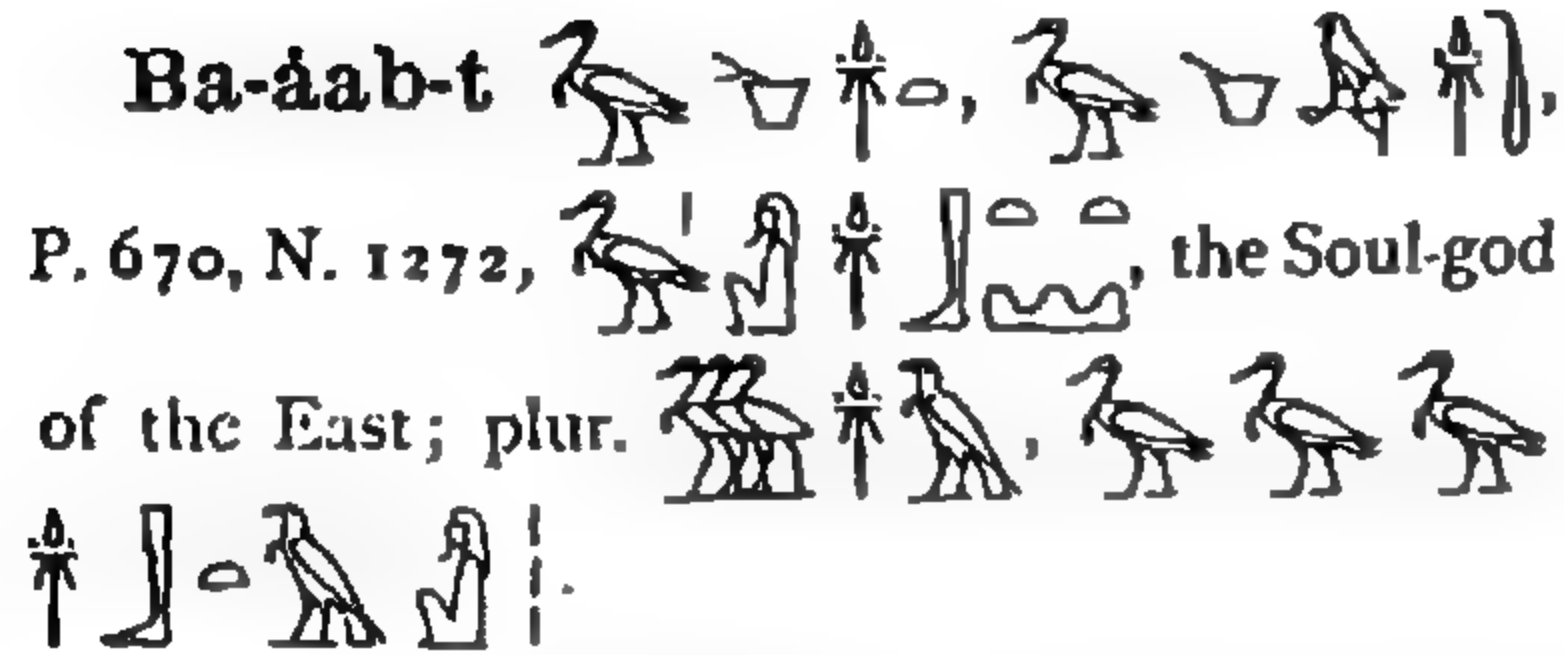 Ba-àab-t 𓅡 𓊸 𓋁 𓏏, 𓅡 𓋁,
P. 670, N. 1272, 𓅡 𓏤 𓀭 𓋁 𓃀 𓏏 𓏏 𓈉, the Soul-god
of the East; plur. 𓅢 𓋁, 𓅡 𓅡 𓅡
𓋁 𓃀 𓏏 𓀭 𓏼.